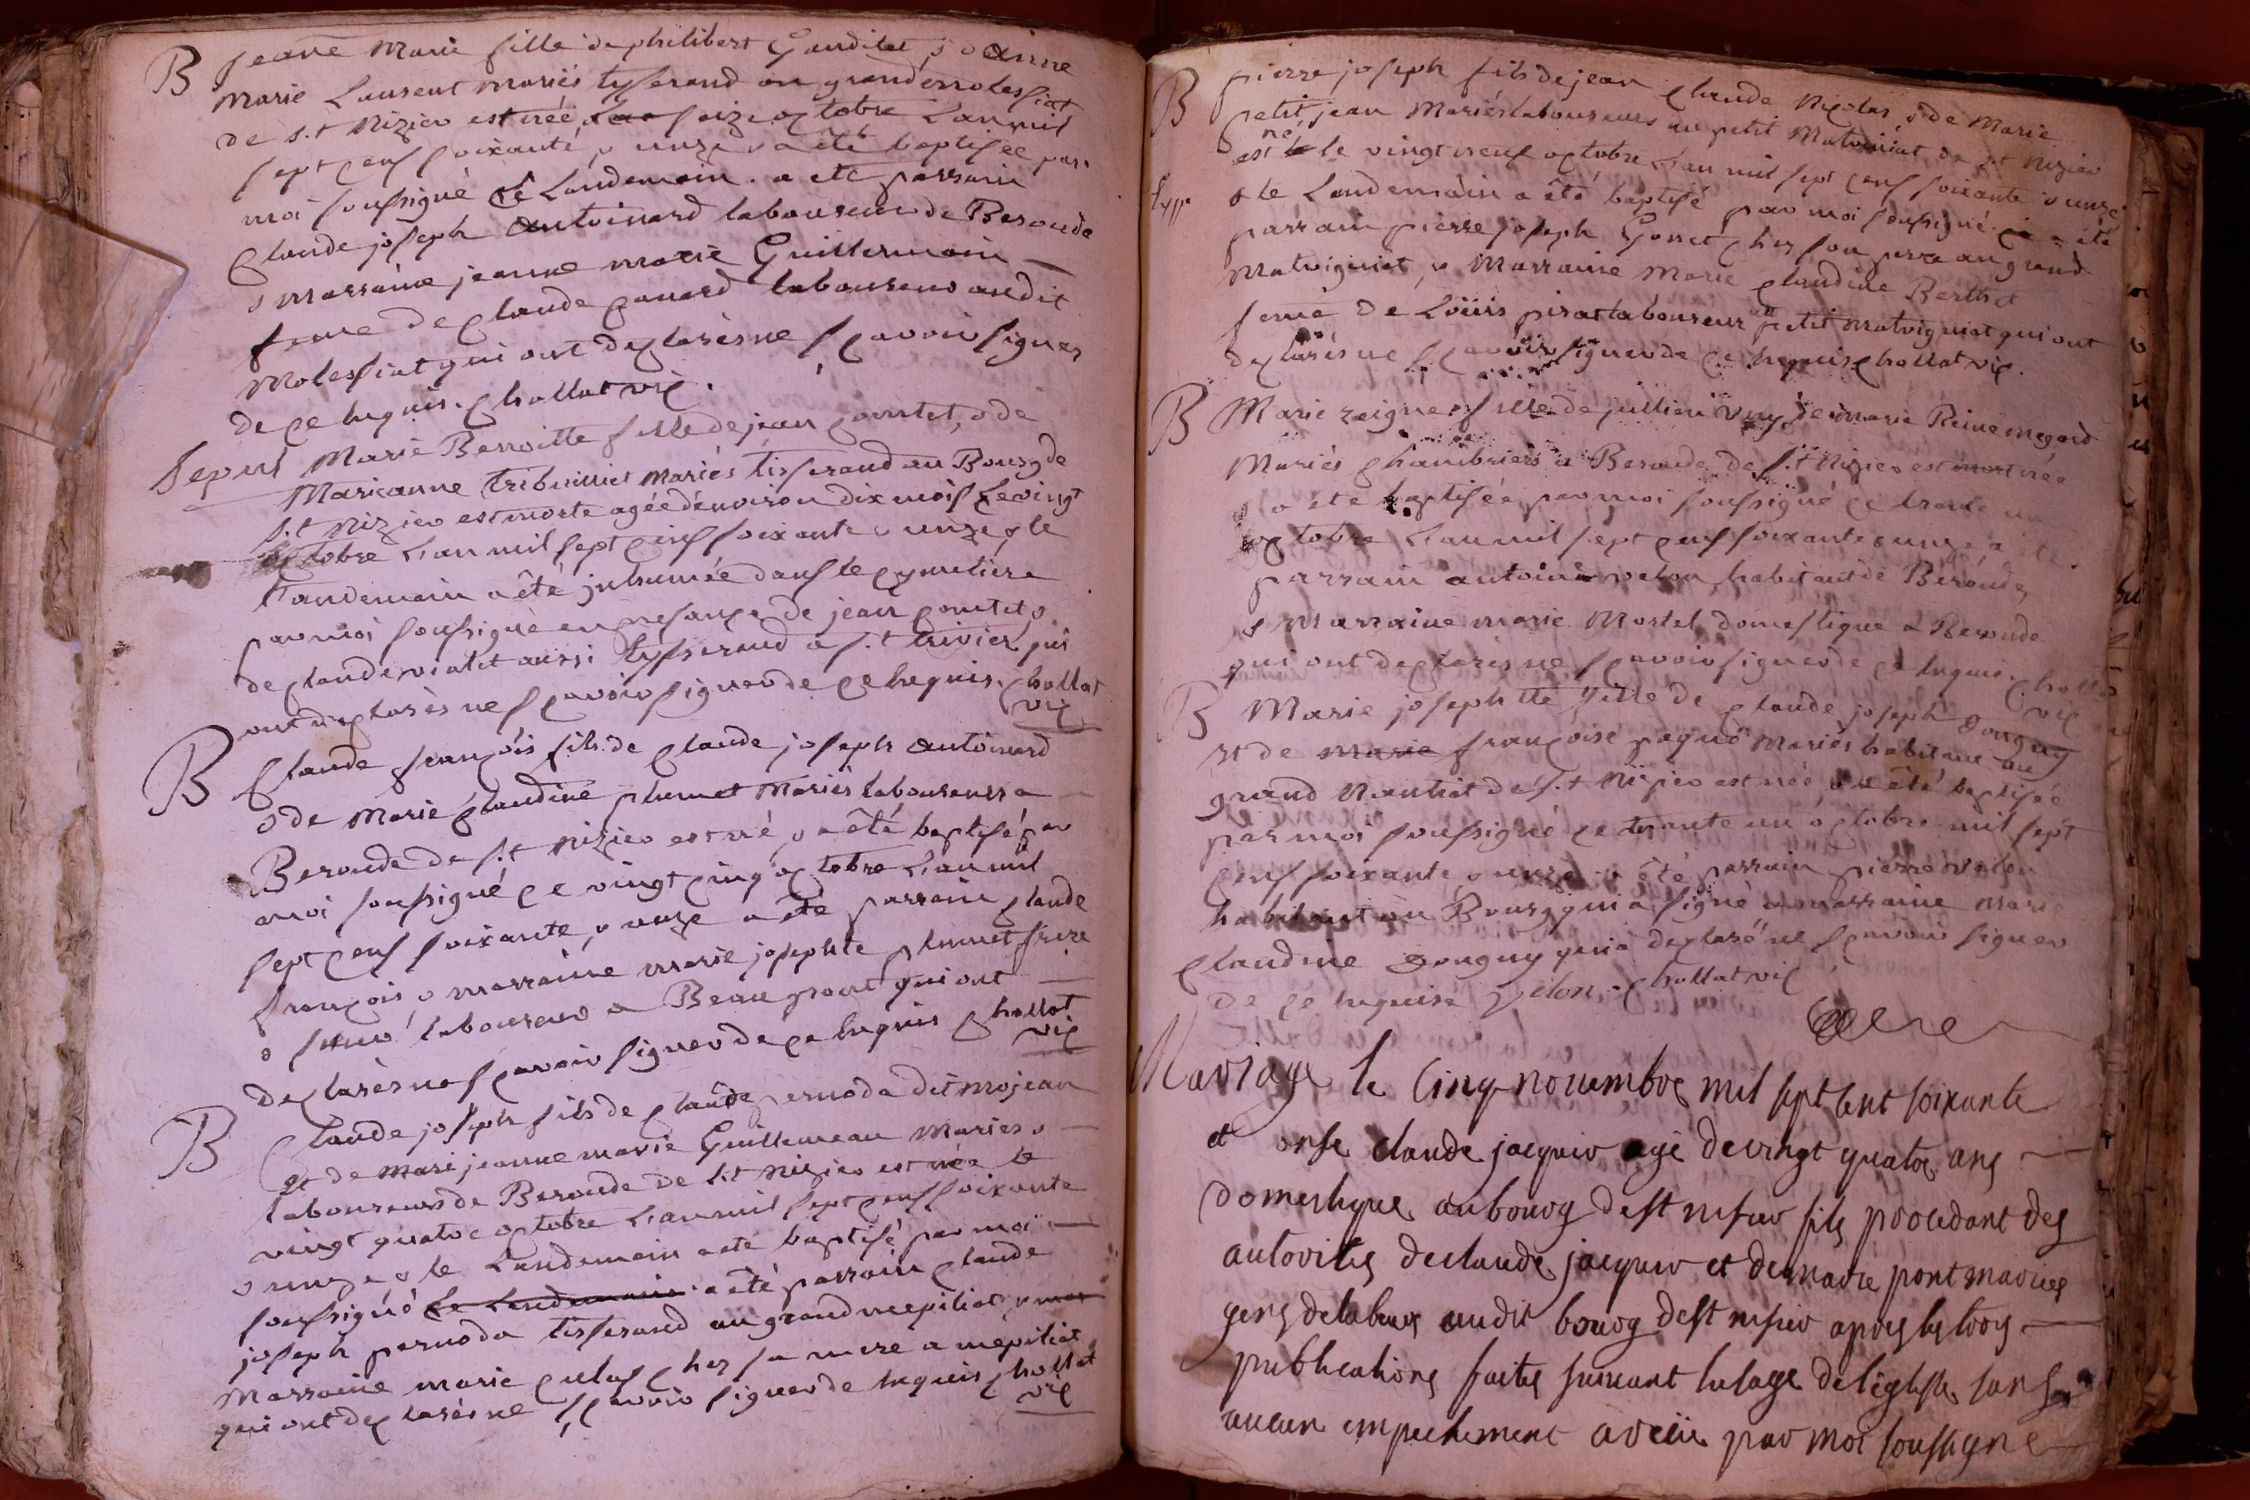 B Jeane Marie fille de philibert Gauditet, & d'anne
Marie Laurent mariés tysserand au grand molessiat
de s.t Nizier est née le seize octobre L'an mil
sept cens soixante, & unze & a été baptisée par
moi soussigné Le Landemain. a été parrain
Claude joseph Antoinard laboureur de Beroude
& marraine jeanne marie Guillermain
feme de Claude Canard laboureur audit
Molessiat qui ont declarés ne sçavoir signer
de ce enquis. Chollat vic.
sepul Marie Benoitte fille de jean Comtet, & de
Marieanne tribuilliet mariés tisserand au Bourg de
s.t Nizier est morte agée d'environ dix mois Le vingt
octobre L'an mil sept cens soixante & unze & le
Landemain a été inhumée dans le cymetiere
par moi soussigné en presance de jean Comtet &
de Claude violet aussi tysserand a s.t trivier qui
ont declarés ne sçavoir signer de ce enquis. Chollat
vic
B Claude françois fils de Claude joseph Antoinard
& de Marie Claudine plumet Mariés laboureurs a
Beroude de s.t Nizier est né, & a été baptisé par
moi soussigné ce vingt cinq octobre L'an mil
sept cens soixante, & unze a été parrain Claude
françois, & marraine marie josephte plumet frere
& seur laboureur a Beaupont qui ont
declarés ne sçavoir signer de ce enquis Chollat
vic
B Claude joseph fils de Claude pernoda dit mojean
et de Marie jeanne marie Guillemeau Mariés
laboureurs de Beroude de s.t Nizier est née le
vingt quatre octobre L'an mil sept cens soixante
& unze & le Landemain a été baptisé par moi
soussigné Le Landemain a été parrain Claude
joseph pernoda tisserand au grand mepiliat & mar
Marraine marie Culas chez sa mere a mepiliat
qui ont declarés ne sçavoir signer de enquis Chollat
vic
B pierre joseph fils de jean Claude Nicolas & de Marie
petitjean Mariés laboureurs au petit Malvigniat de s.t Nizier
est né le vingt neuf octobre L'an mil sept cens soixante & unze
& le Landemain a été baptisé par moi soussigné a été
parrain pierre joseph Gonet chez son pere au grand
Malvigniat, & Marraine Marie Claudine Berthet
feme de Loüis pirat laboureur au petit Malvigniat qui ont
declarés ne sçavoir signer de ce enquis Chollat vic.
B Marie reigne fille de jullien Vuy, & de marie Reine megard
Mariés Chambriers a Beroude de s.t Nizier est mort née
& a été baptisée par moi soussigné ce trente un
octobre L'an mil sept cens soixante & unze a été
parrain antoine velon habitant de Beroude,
& Marraine marie Mortel domestique a Beroude
qui ont declarés ne sçavoir signer de ce enquis. Chollat
vic
B Marie josephtte fille de Claude joseph Gonguy
et de marie françoise pagud Mariés habitans au
grand Nantiat de s.t Nizier est née, & a été baptisée
par moi soussigné ce trente un octobre mil sept
cens soixante & unze a été parrain pierre velon
habitant au Bourg qui a signé & marraine Marie
Claudine Gonguy qui a declaré ne sçavoir signer
de ce enquise velon. Chollat vic
Mariage le Cinq novembre mil sept cent soixante
et onse claude jacquir agé de vingt quatre ans
domestique au bourg de st nisier fils procedant des
autorites de claude jacquir et de marie pont maries
gens de labeur audit bourg de st nisier apres les trois
publications faites suivant lusage de l'eglise sans
aucun empechement a eté par moi soussigné